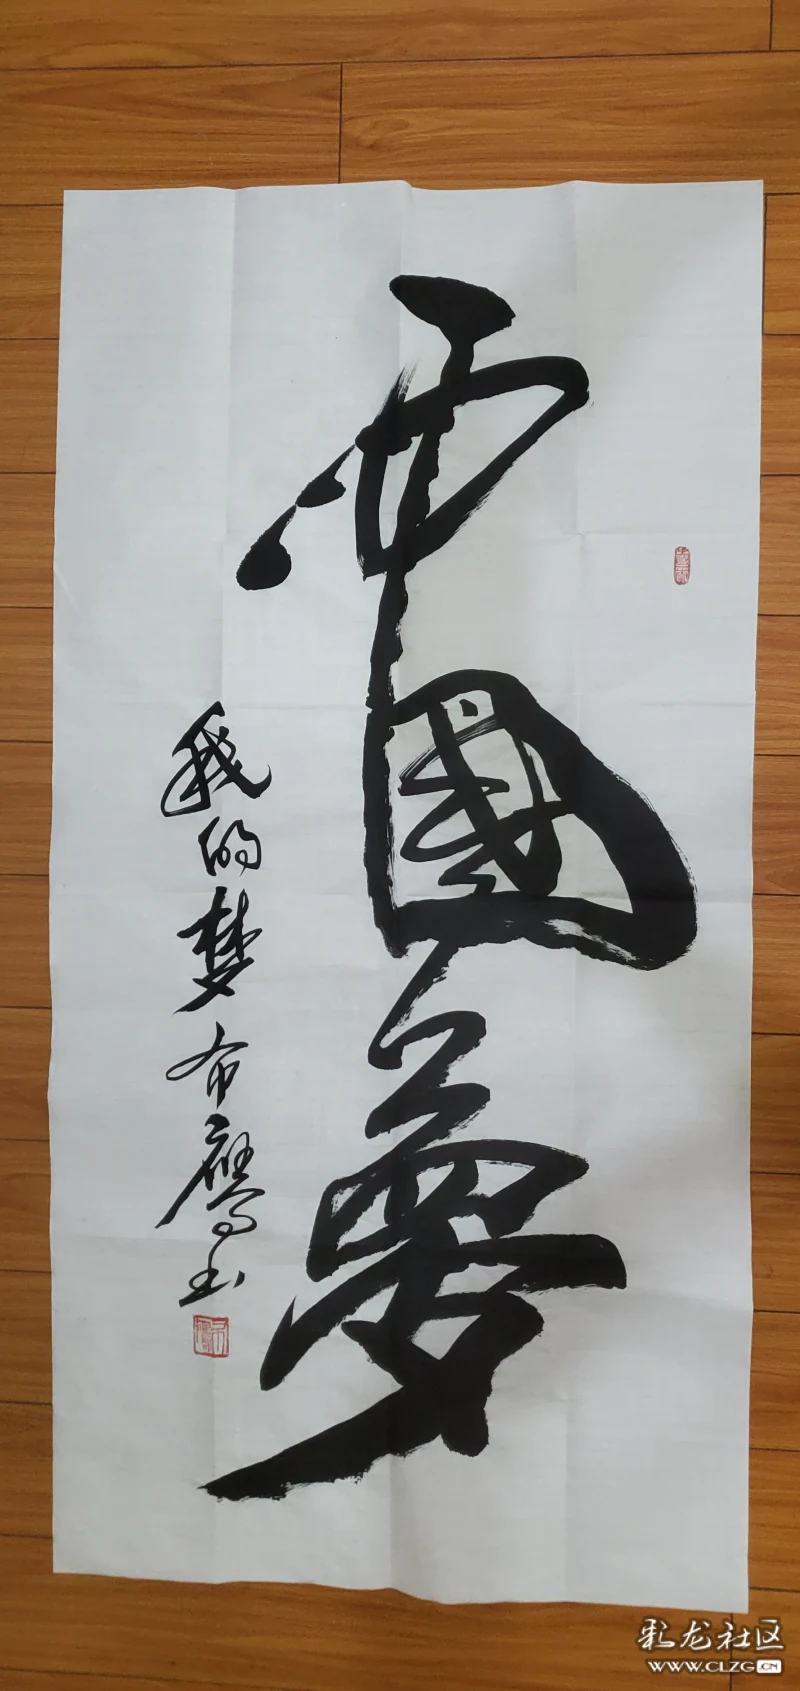 中國夢
我的梦 布鹰书
彩龙社区
WWW.CLZG.CN